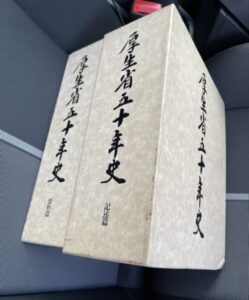 厚生省五十年史
資料篇
厚生省五十年史
記述篇
厚生省五十年史